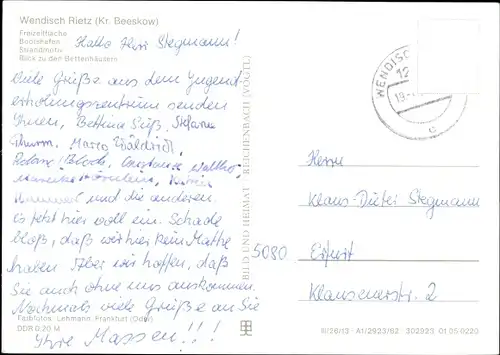 Wendisch Rietz (Kr. Beeskow)
Freizeitfläche
Bootshafen
Strandmotiv
Blick zu den Bettenhäusern
Hallo Herr Stegmann!
Viele Grüße aus dem Jugend-
erholungszentrum senden
Ihnen, Bettina Süß, Stefanie
Thurm, Marco
und die anderen.
Es fetzt hier voll ein. Schade
bloß, daß wir hier kein Mathe
haben. Aber wir hoffen, daß
Sie auch ohne uns auskommen.
Nochmals viele Grüße an Sie
Ihre Massen!!!
Farbfotos: Lehmann, Frankfurt (Oder)
DDR 0,20 M
BILD UND HEIMAT REICHENBACH (VOGTL)
WENDISCH
Herrn
Klaus-Dieter Stegmann
5080 Erfurt
Klausenerstr. 2
III/26/13 · A1/2923/82 · 302923 01 05 0220